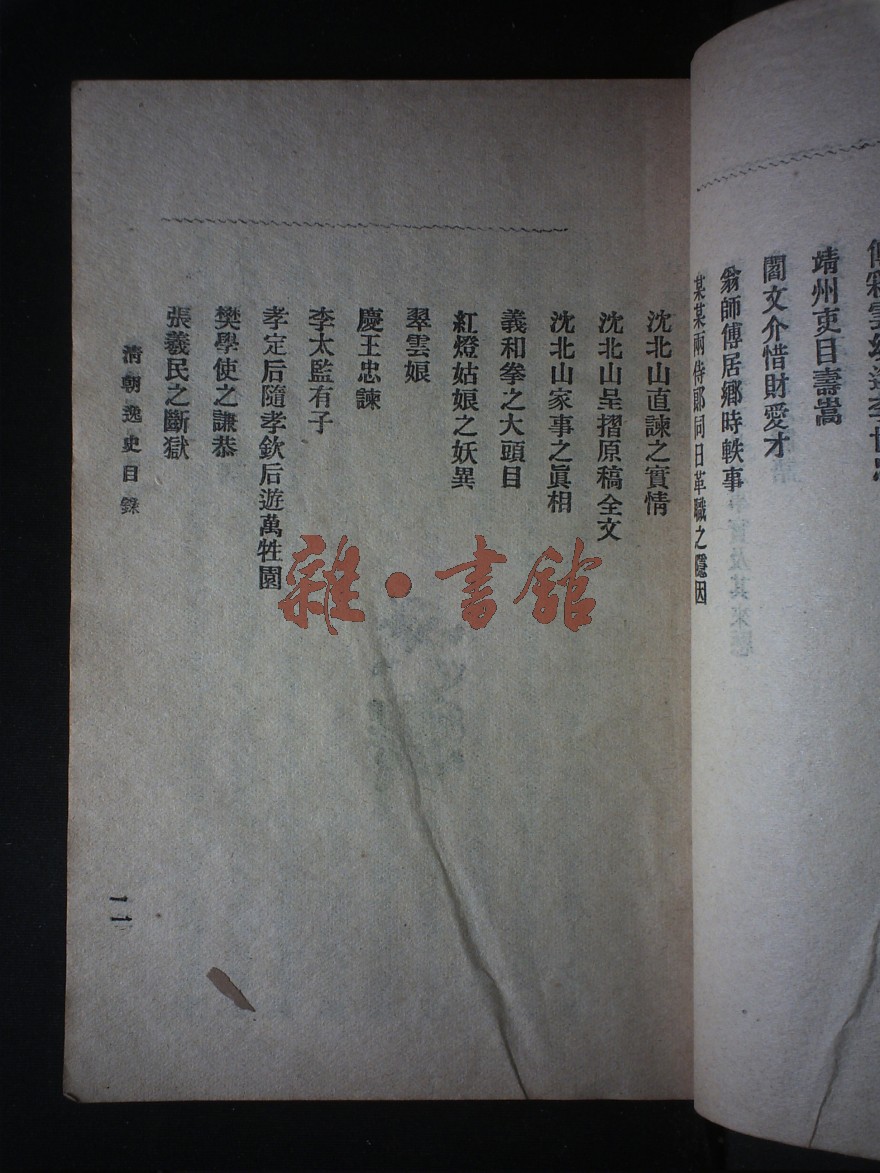 靖州吏目壽嵩
閻文介惜財愛才
翁師傅居鄉時軼事
某某兩侍郎同日革職之隱因
沈北山直諫之實情
沈北山呈摺原稿全文
沈北山家事之眞相
義和拳之大頭目
紅燈姑娘之妖異
翠雲娘
慶王忠諫
李太監有子
孝定后隨孝欽后遊萬牲園
樊學使之謙恭
張羲民之斷獄
清朝逸史目錄
二
雜·書館